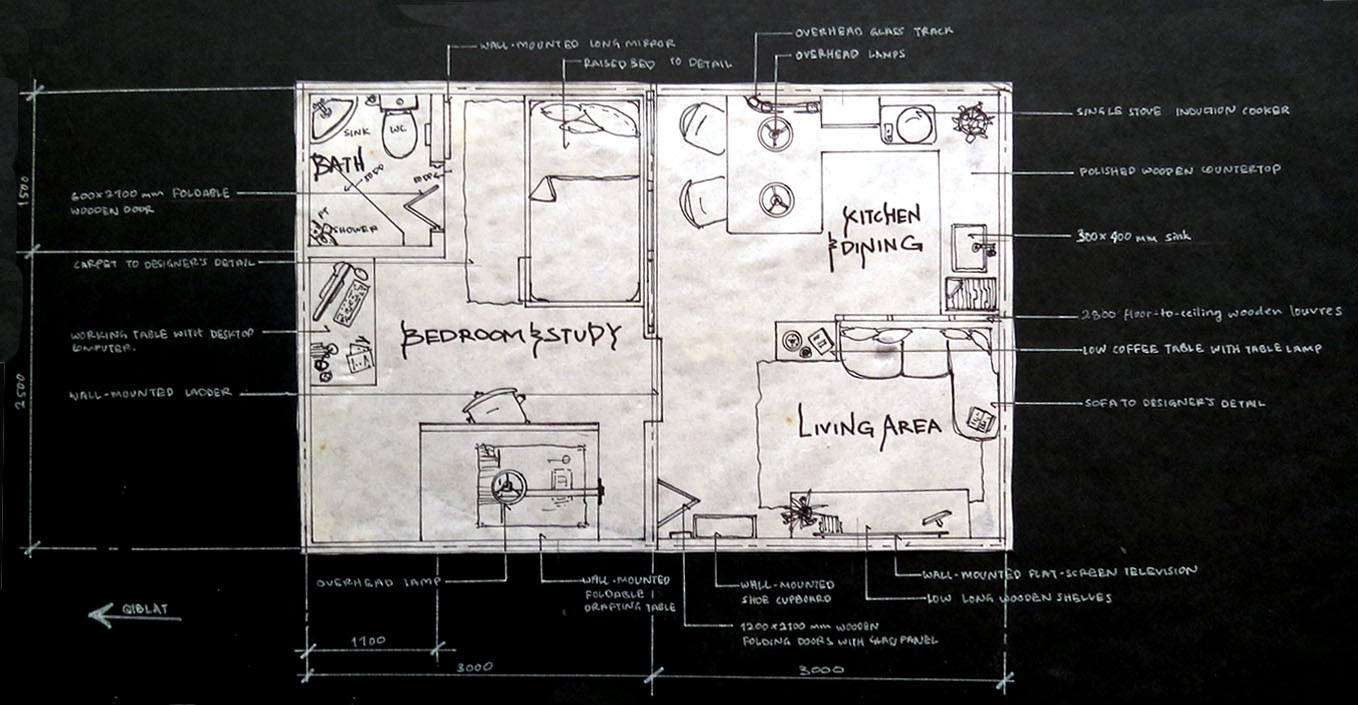 WALL-MOUNTED LONG MIRROR
RAISED BED TO DETAIL
OVERHEAD GLASS TRACK
OVERHEAD LAMPS
SINGLE STOVE INDUCTION COOKER
POLISHED WOODEN COUNTERTOP
300x400 mm sink
2300 floor-to-ceiling wooden louvres
LOW COFFEE TABLE WITH TABLE LAMP
SOFA TO DESIGNER'S DETAIL
600x2100 mm FOLDABLE
WOODEN DOOR
CARPET TO DESIGNER'S DETAIL
WORKING TABLE WITH DESKTOP
COMPUTER.
WALL-MOUNTED LADDER
1500
2500
SINK
WC
BATH
SHOWER
BEDROOM & STUDY
KITCHEN
& DINING
LIVING AREA
OVERHEAD LAMP
WALL-MOUNTED
FOLDABLE
DRAFTING TABLE
WALL-MOUNTED
SHOE CUPBOARD
1200x2100 mm WOODEN
FOLDING DOORS WITH GLASS PANEL
WALL-MOUNTED FLAT-SCREEN TELEVISION
LOW LONG WOODEN SHELVES
QIBLAT
1100
3000
3000